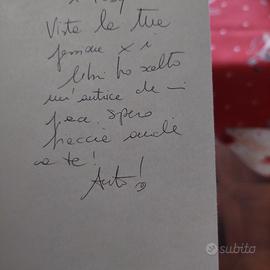 Vista la tua
passione x i
libri ho scelto
un'autrice che mi
piace, spero
piaccia anche
a te!
subito